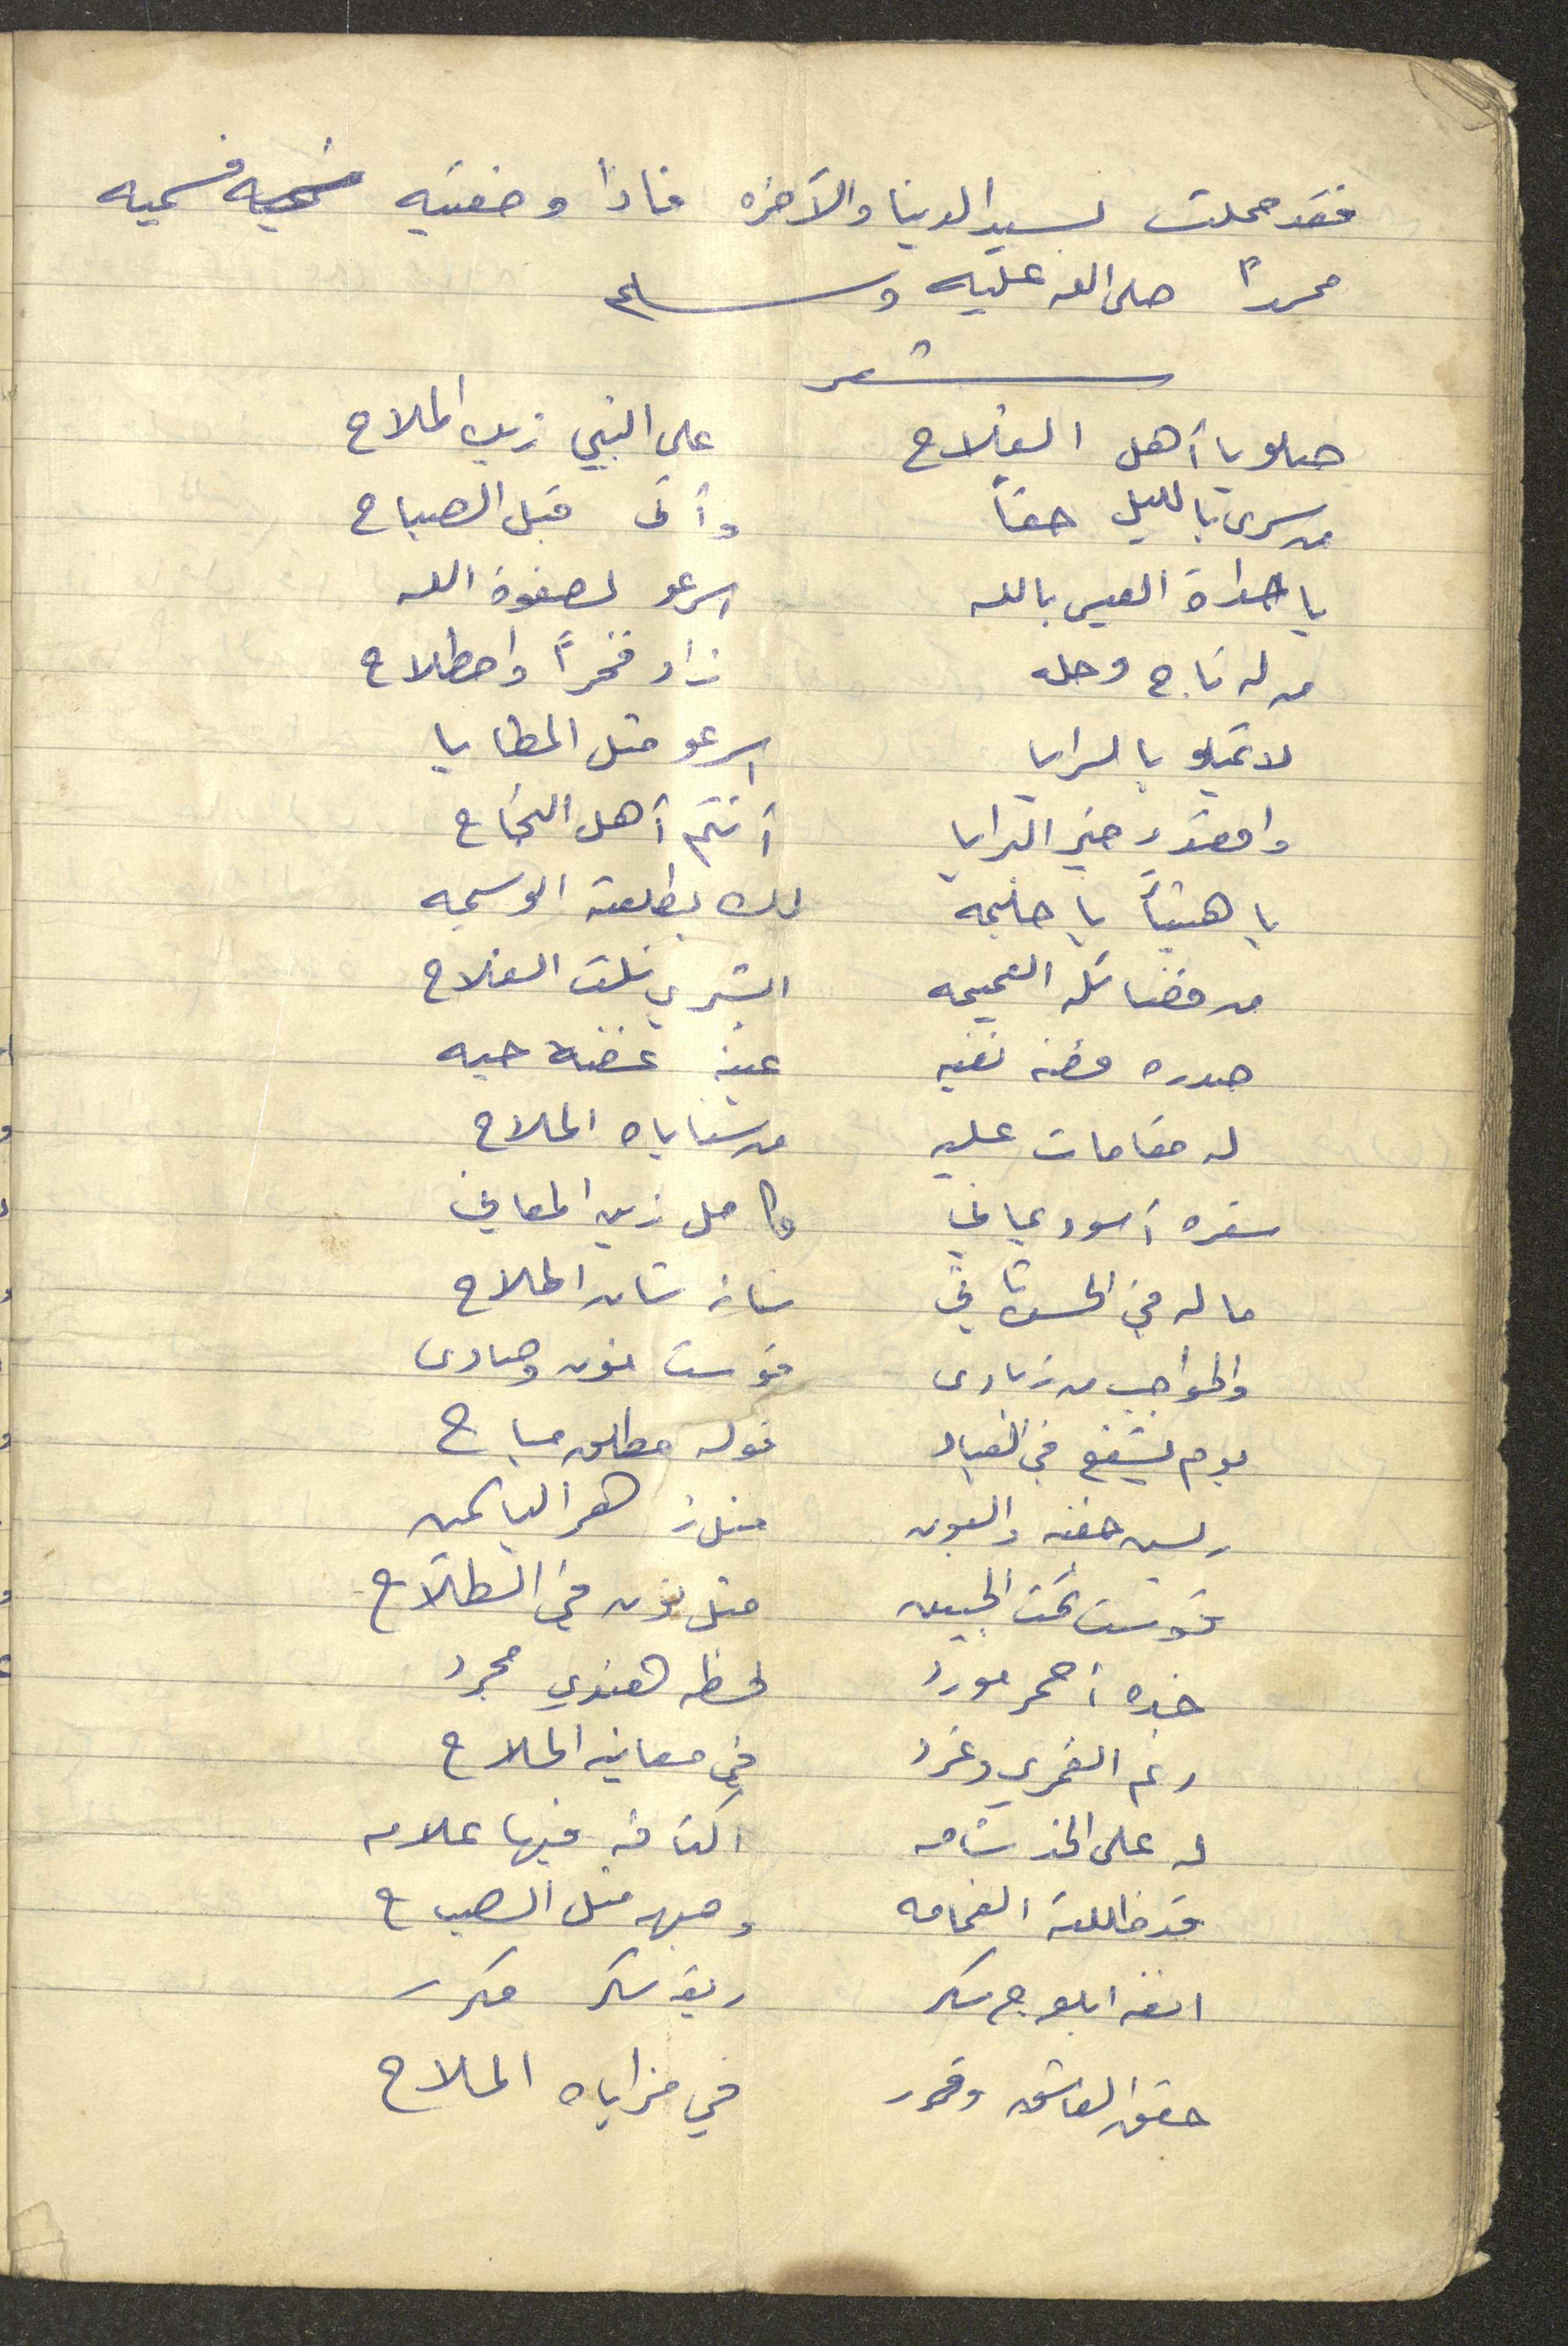 فقد حملت لسيد الدينا والآخره فاذا وضعتيه فسميه
محمداً صلى الله عليه وسلم
شعر
صلو يا أهل الفلاح على النبي زين الملاح
من سرى بالليل حقاً وأتى قبل الصباح
يا حداة العيس بالله اسرعو لصفوة الله
من له تاج وحله زاد فخراً واصطلاح
لا تميلو يا لسرايا اسرعو مثل المطايا
واقصدو خير البرايا أنتم أهل النجاح
يا هنيئاً يا حليمه لك بطلعة الوسيمه
من فضائله العميمه ابشري نلت الفلاح
صدره فضه نقيه عينه غضه حيه
له مقامات عليه من ثناياه الملاح
شعره أسود يماني كامل زين المعاني
ما له في الحسن ثاني شانه شان الملاح
والحواجب من زبادى قوست نون وصادى
يوم يشفع في العباد قوله مطلق مباح
ريش جفنه والعيون مثل زهر الياسمين
قوست تحت الجبين مثل نون في السطلاح
خده أحمر مورد لحظه هندي مجرد
رنم القمري وغرد في معانيه الملاح
له على الخد شامه اكتافه فيها علامه
قد ظللته الغمامه وجهه مثل الصباح
انفه ابلوج سكر ريقه سكر مكرر
حقق العاشق وقرر في مزاياه الملاح